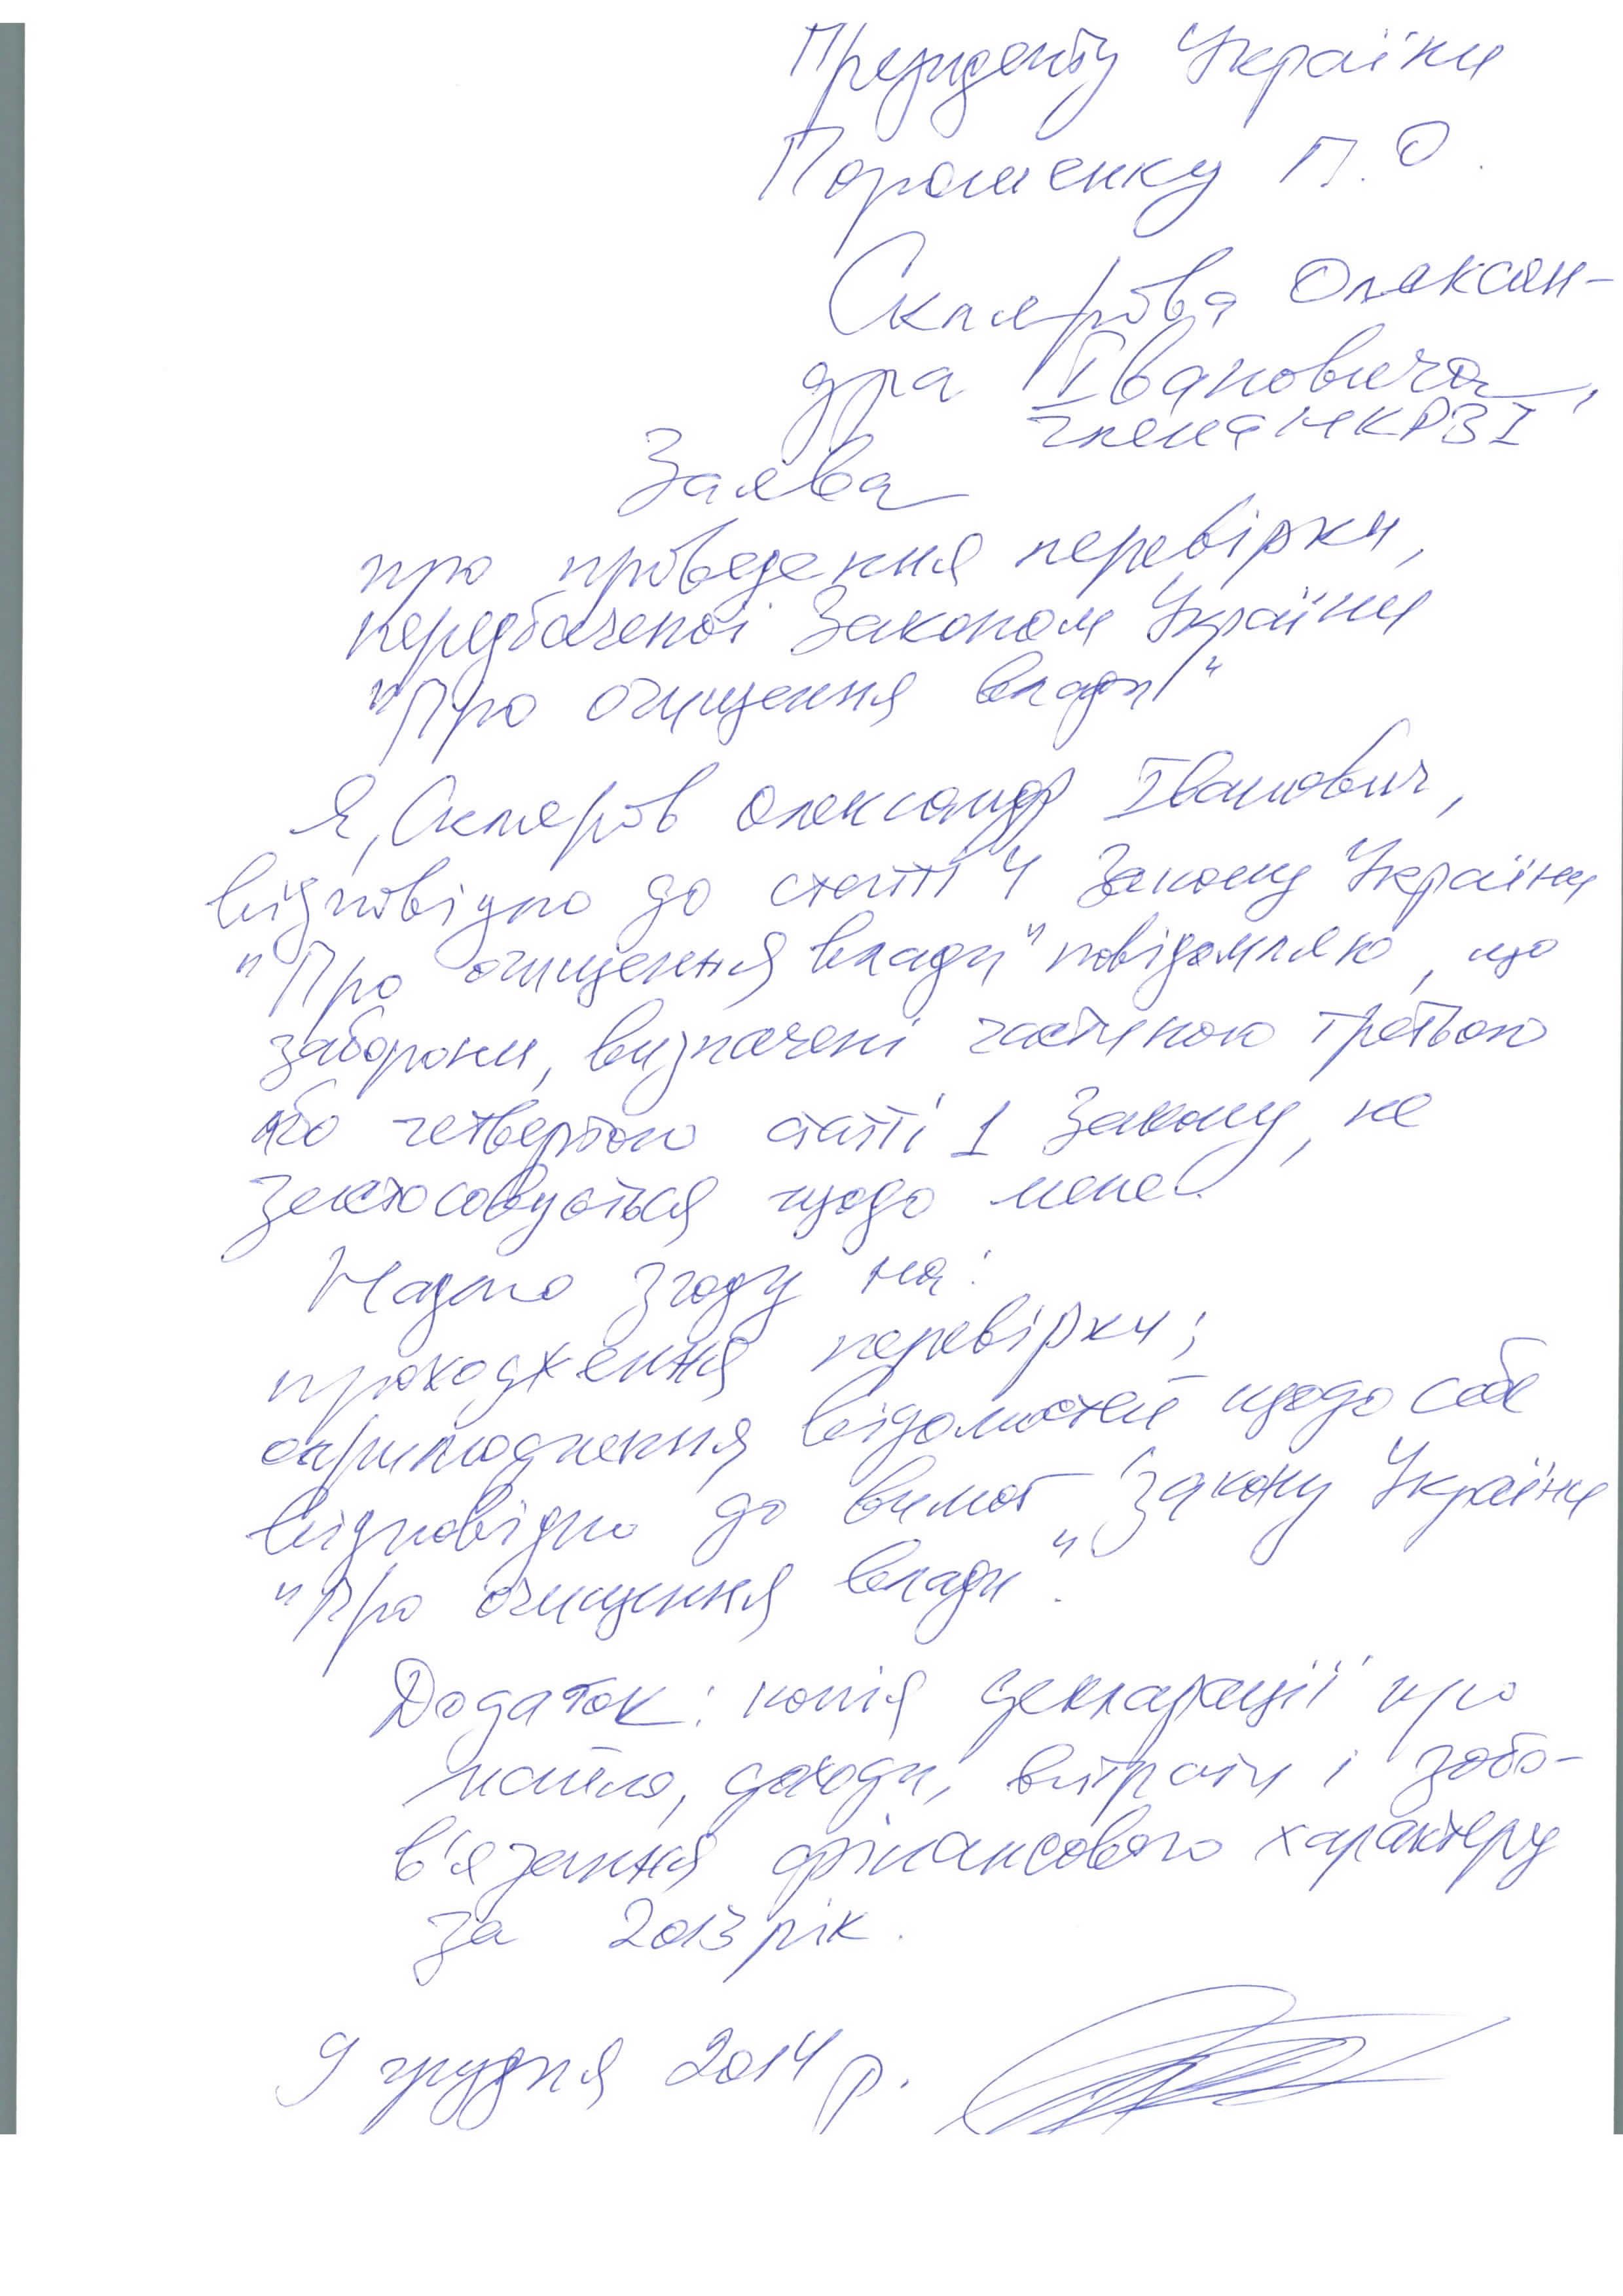 Президенту України
Порошенку П.О.
Склярова Олексан-
дра Івановича,
члена НКРЗІ
Заява
про проведення перевірки,
передбаченої Законом України
"Про очищення влади"
Я, Скляров Олександр Іванович,
відповідно до статті 4 Закону України
"Про очищення влади" повідомляю, що
заборони, визначені частиною третьою
або четвертою статті 1 Закону, не
застосовуються щодо мене.
Надаю згоду на:
проходження перевірки;
оприлюднення відомостей щодо себе
відповідно до вимог Закону України
"Про очищення влади".
Додаток: копія декларації про
майно, доходи, витрати і зобо-
в'язання фінансового характеру
за 2013 рік.
9 грудня 2014 р.